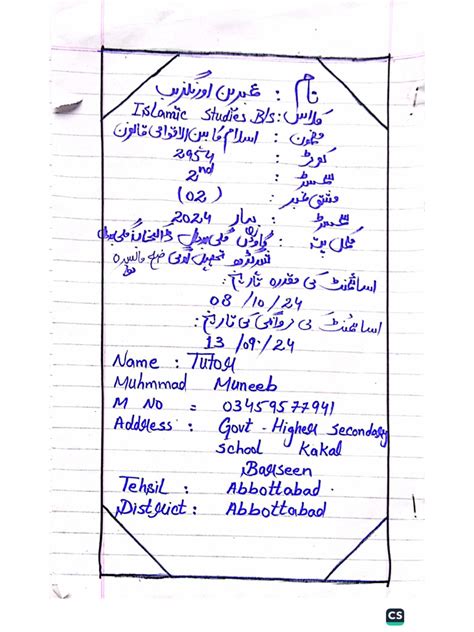 نام : عنبرین اورنگزیب
کلاس : Islamic Studies B/s
مضمون : اسلام کا بین الاقوامی قانون
کوڈ : 2954
سمسٹر : 2nd
مشق نمبر : (02)
سمسٹر : بہار 2024
مکمل پتہ : گاؤں
تحصیل ضلع
اسائنمنٹ کی مقررہ تاریخ :
08/10/24
اسائنمنٹ کی روانگی کی تاریخ :
13/09/24
Name : Tutor
Muhmmad Muneeb
M No = 03459577941
Address : Govt - Higher Secondary
School Kakal
Barseen
Tehsil : Abbottabad
District : Abbottabad
CS